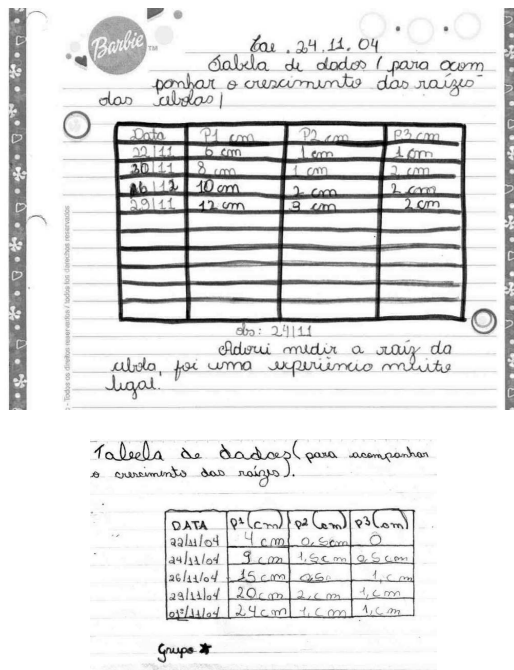 Barbie TM
24.11.04
Tabela de dados ( para acom
panhar o crescimento das raízes
das cebolas )
Data P1 cm P2 cm P3 cm
22/11 6 cm 1 cm 1 cm
30/11 8 cm 1 cm 2 cm
10 cm 2 cm 2 cm
29/11 12 cm 3 cm 2 cm
obs: 24/11
Adorei medir a raíz da
cebola, foi uma experiência muito
legal.
- Todos os direitos reservados / todos los derechos reservados
Tabela de dados (para acompanhar
o crescimento das raízes).
DATA P1 (cm) P2 (cm) P3 (cm)
22/11/04 4 cm 0,5cm 0
24/11/04 9 cm 1,5cm 0,5 cm
26/11/04 15 cm 1, cm
29/11/04 20 cm 2, cm 1, cm
24 cm 1, cm 1, cm
Grupo